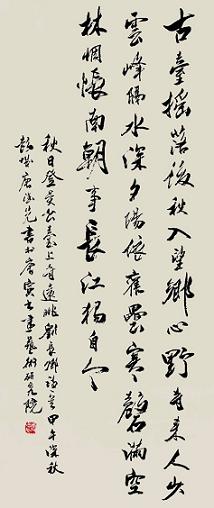 古臺搖落後秋入望鄉心野寺來人少
雲峰隔水深夕陽依舊壘寒磬滿空
林惆悵南朝事長江獨自今
秋日登吳公臺上寺遠眺劉長卿詩甲午深秋
書於藝術研究院